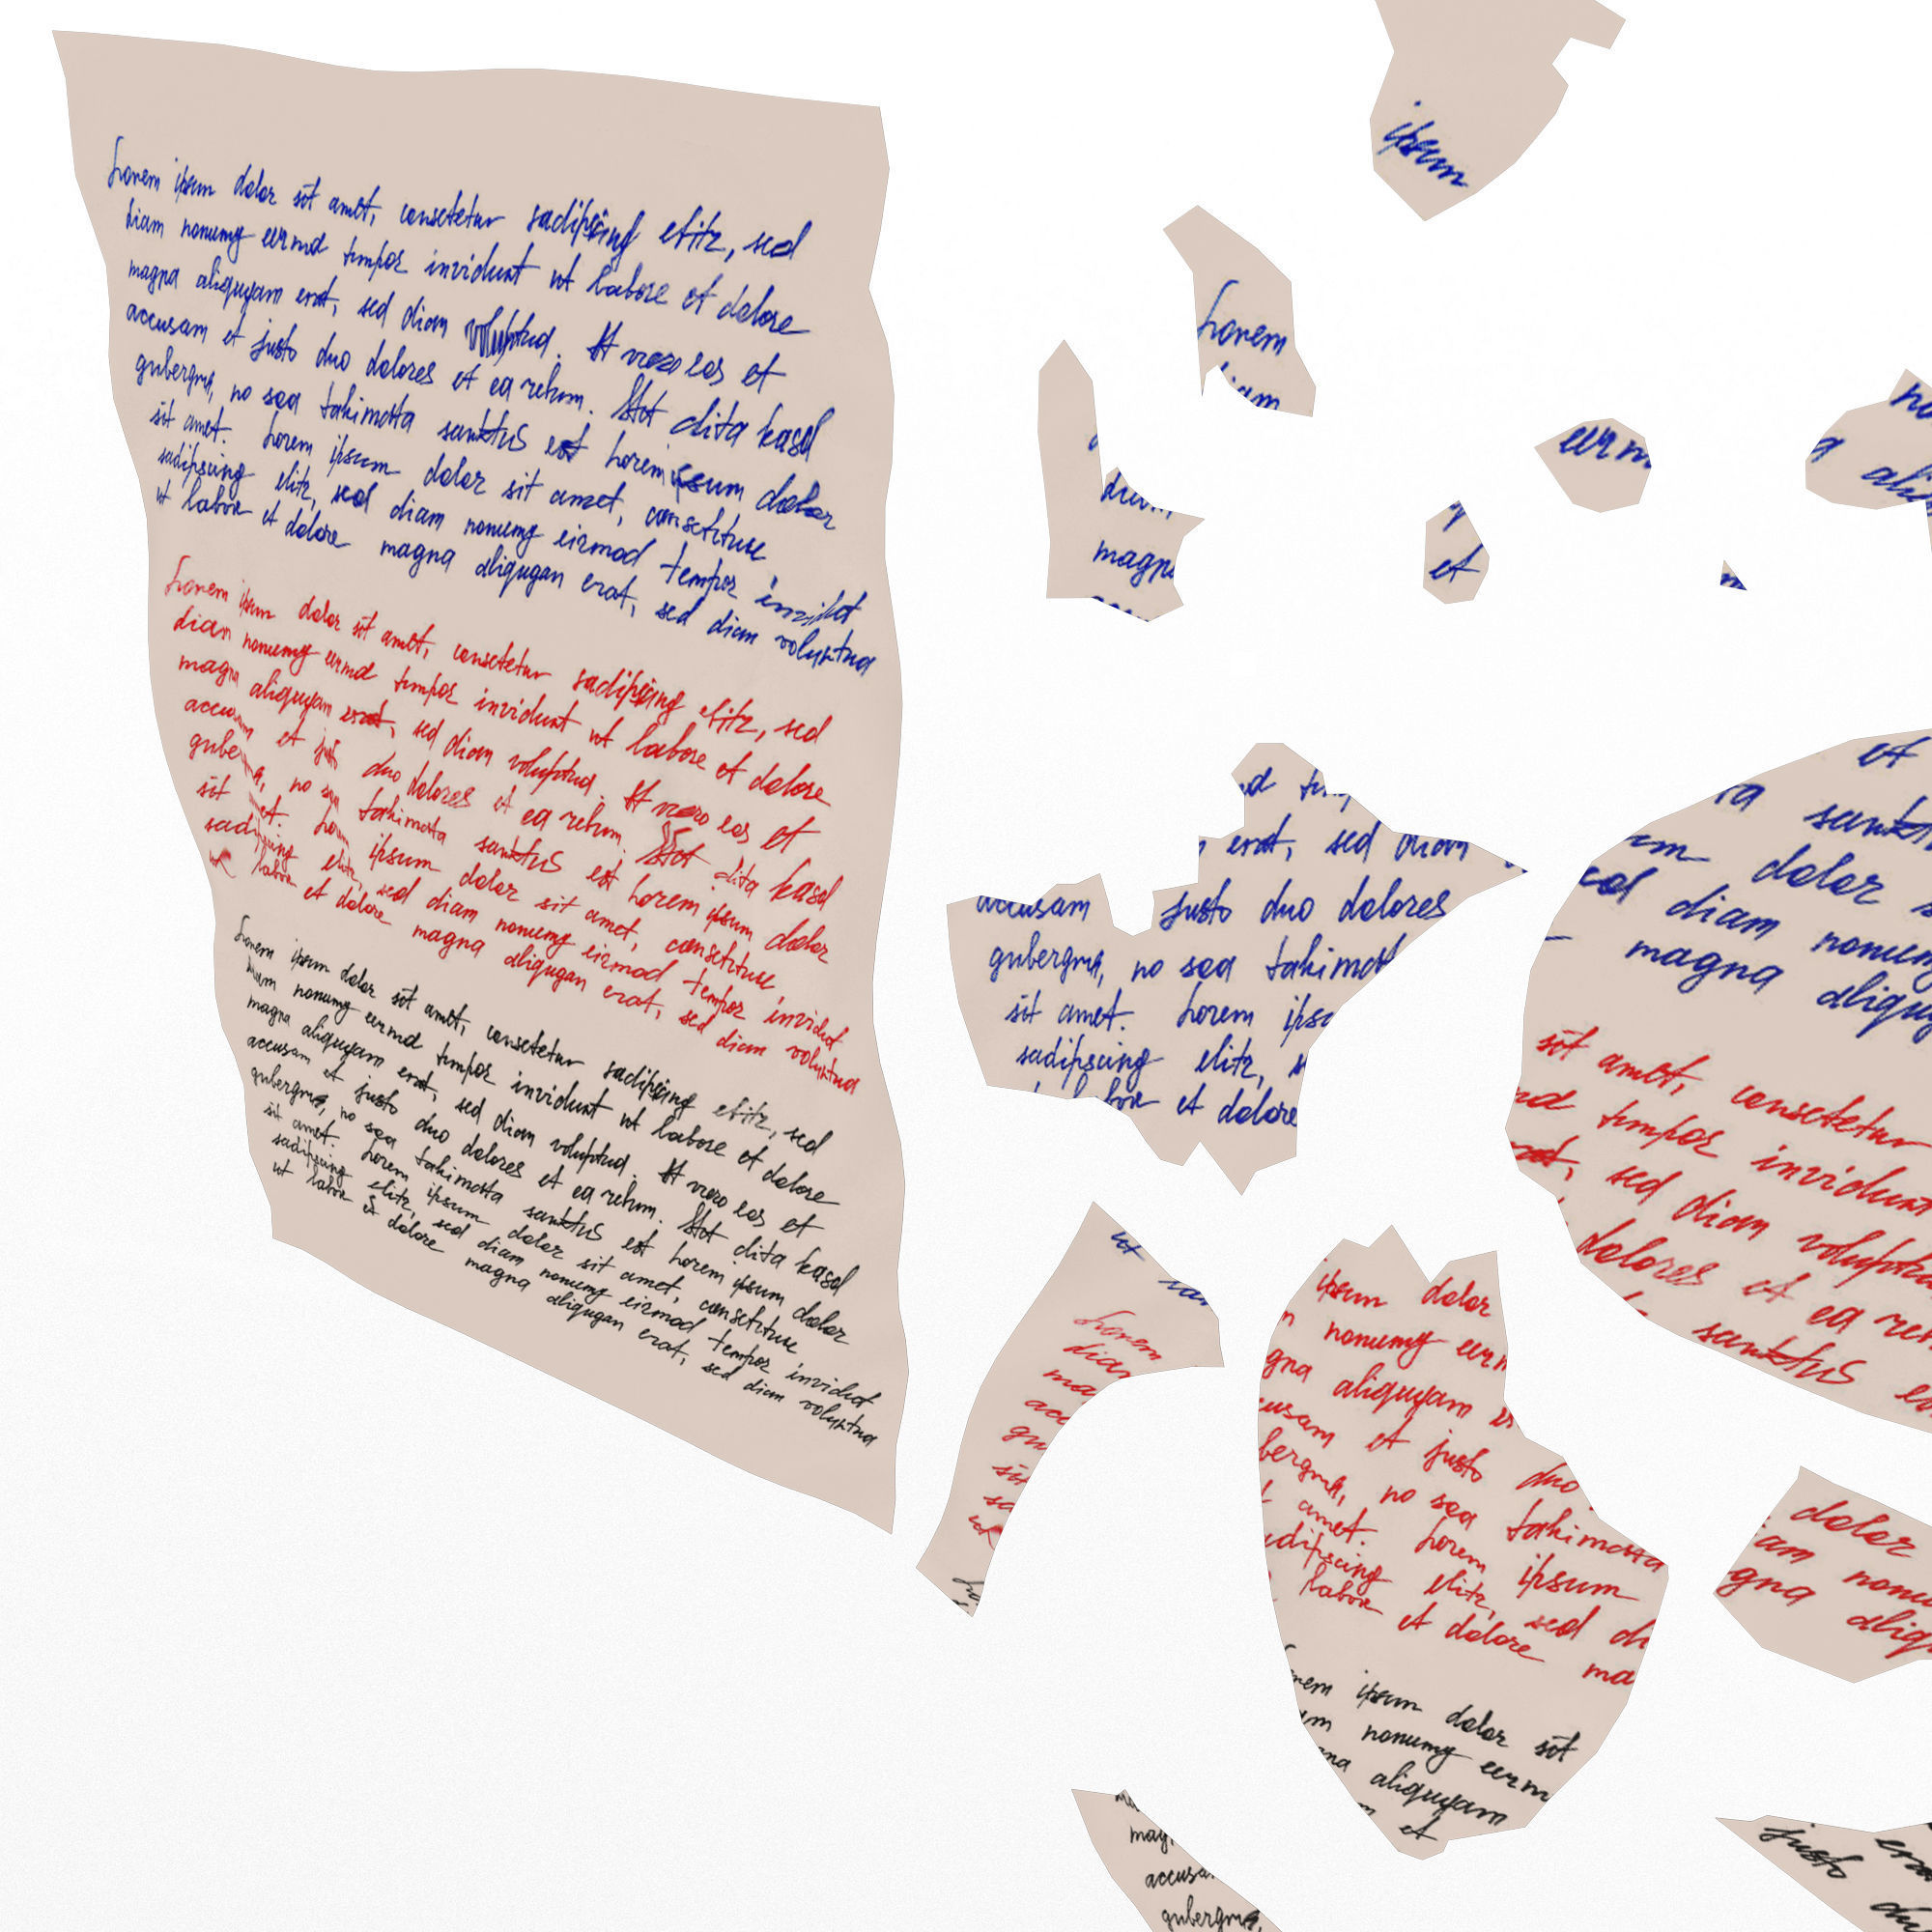 Lorem ipsum dolor sit amet, consetetur sadipscing elitr, sed
diam nonumy eirmod tempor invidunt ut labore et dolore
magna aliquyam erat, sed diam voluptua. At vero eos et
accusam et justo duo dolores et ea rebum. Stet clita kasd
gubergren, no sea takimata sanktus est Lorem ipsum dolor
sit amet. Lorem ipsum dolor sit amet, consetetur
sadipscing elitr, sed diam nonumy eirmod tempor invidut
ut labore et dolore magna aliqugan erat, sed diam voluptua
Lorem ipsum dolor sit amet, consetetur sadipscing elitr, sed
diam nonumy eirmod tempor invidunt ut labore et dolore
magna aliquyam erat, sed diam voluptua. At vero eos et
et duo dolores et ea rebum. Stet clita kasd
no sea takimata sanktus est Lorem ipsum dolor
sit ipsum dolor sit amet, consetetur
elitr, sed diam nonumy eirmod tempor invidut
labore et dolore magna aliqugan erat, sed diam voluptua
Lorem ipsum dolor sit amet, consetetur sadipscing elitr, sed
diam nonumy eirmod tempor invidunt ut labore et dolore
magna aliquyam erat, sed diam voluptua. At vero eos et
accusam et justo duo dolores et ea rebum. Stet clita kasd
gubergren, no sea takimata sanktus est Lorem ipsum dolor
sit amet. Lorem ipsum dolor sit amet, consetetur
sadipscing elitr, sed diam nonumy eirmod tempor invidut
ut labore et dolore magna aliqugan erat, sed diam voluptua
ipsum
Lorem
magna
eirm
et
erat, sed diam
accusam justo duo dolores
gubergren, no sea takimat
sit amet. Lorem ips
sadipscing elitr, s
et dolore
ut
Lorem
diam
ma
acc
gu
sit
sa
ipsum dolor
nonumy eirm
gna aliquyam er
cusam et justo duo
bergren, no sea takimata
amet. Lorem ipsum
adipscing elitr, sed di
labore et dolore ma
rem ipsum dolor sit
am nonumy eirm
gna aliquyam
et
et
ta sankt
um dolor s
sed diam nonum
magna aliqug
sit amet, consetetur
md tempor invidunt
erat, sed diam voluptua
dolores et ea re
sanktus es
dolor
am nonu
gna aliq
mag
accusa
gubergren,
justo era
du